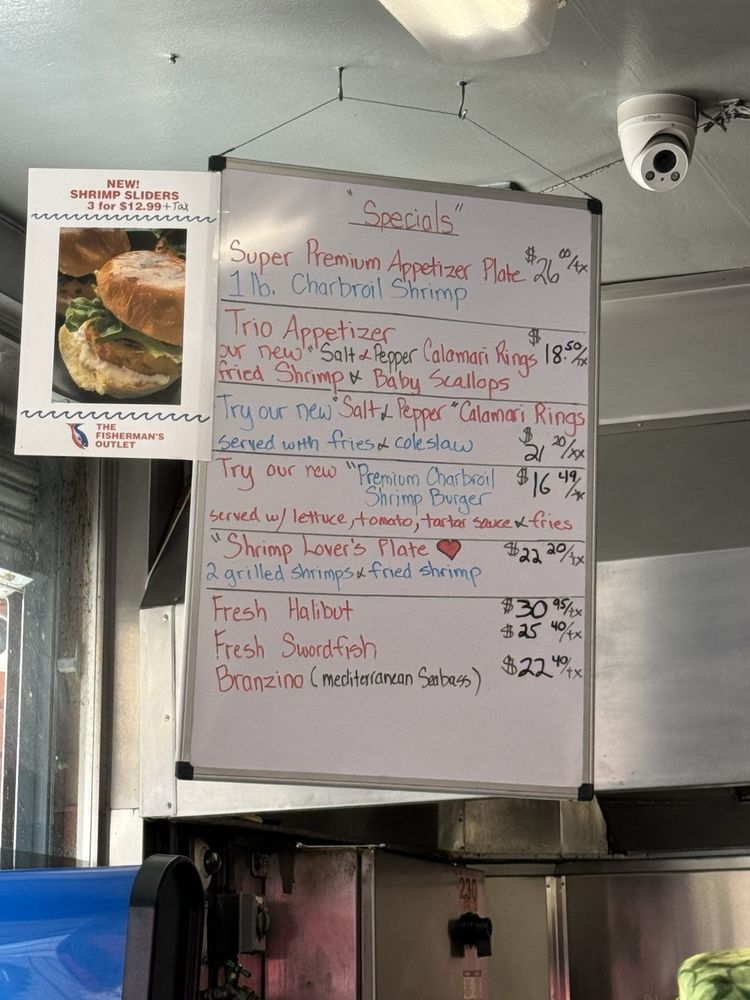 NEW!
SHRIMP SLIDERS
3 for $12.99 + Tax
THE
FISHERMAN'S
OUTLET
"Specials"
Super Premium Appetizer Plate $26 00/tx
1 lb. Charbroil Shrimp
Trio Appetizer $
our new "Salt & Pepper Calamari Rings 18.50/tx
fried Shrimp & Baby Scallops
Try our new "Salt & Pepper "Calamari Rings
served with fries & coleslaw $21 20/xx
Try our new "Premium Charbroil $16 49/tx
Shrimp Burger
served w/ lettuce, tomato, tartar sauce & fries
"Shrimp Lover's Plate ❤ $22 20/tx
2 grilled shrimps & fried shrimp
Fresh Halibut $30 95/tx
Fresh Swordfish $25 40/tx
Branzino (mediterranean Seabass) $22 40/tx
alhua
230